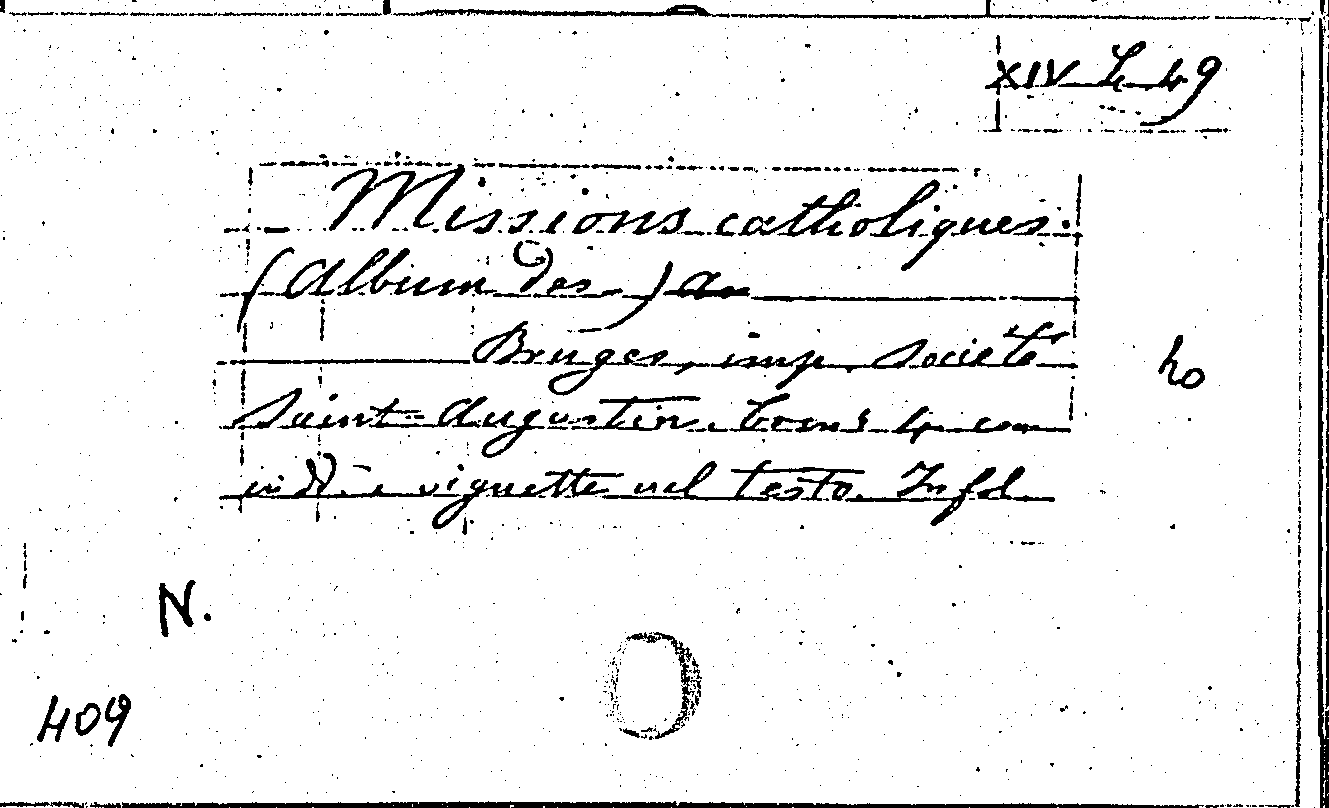 XIV L 49
Missions catholiques.
(Album des) an
Bruges, imp. Société
Saint-Augustin. Toms 4 con
e vignette nel testo. In fol.
N.
409